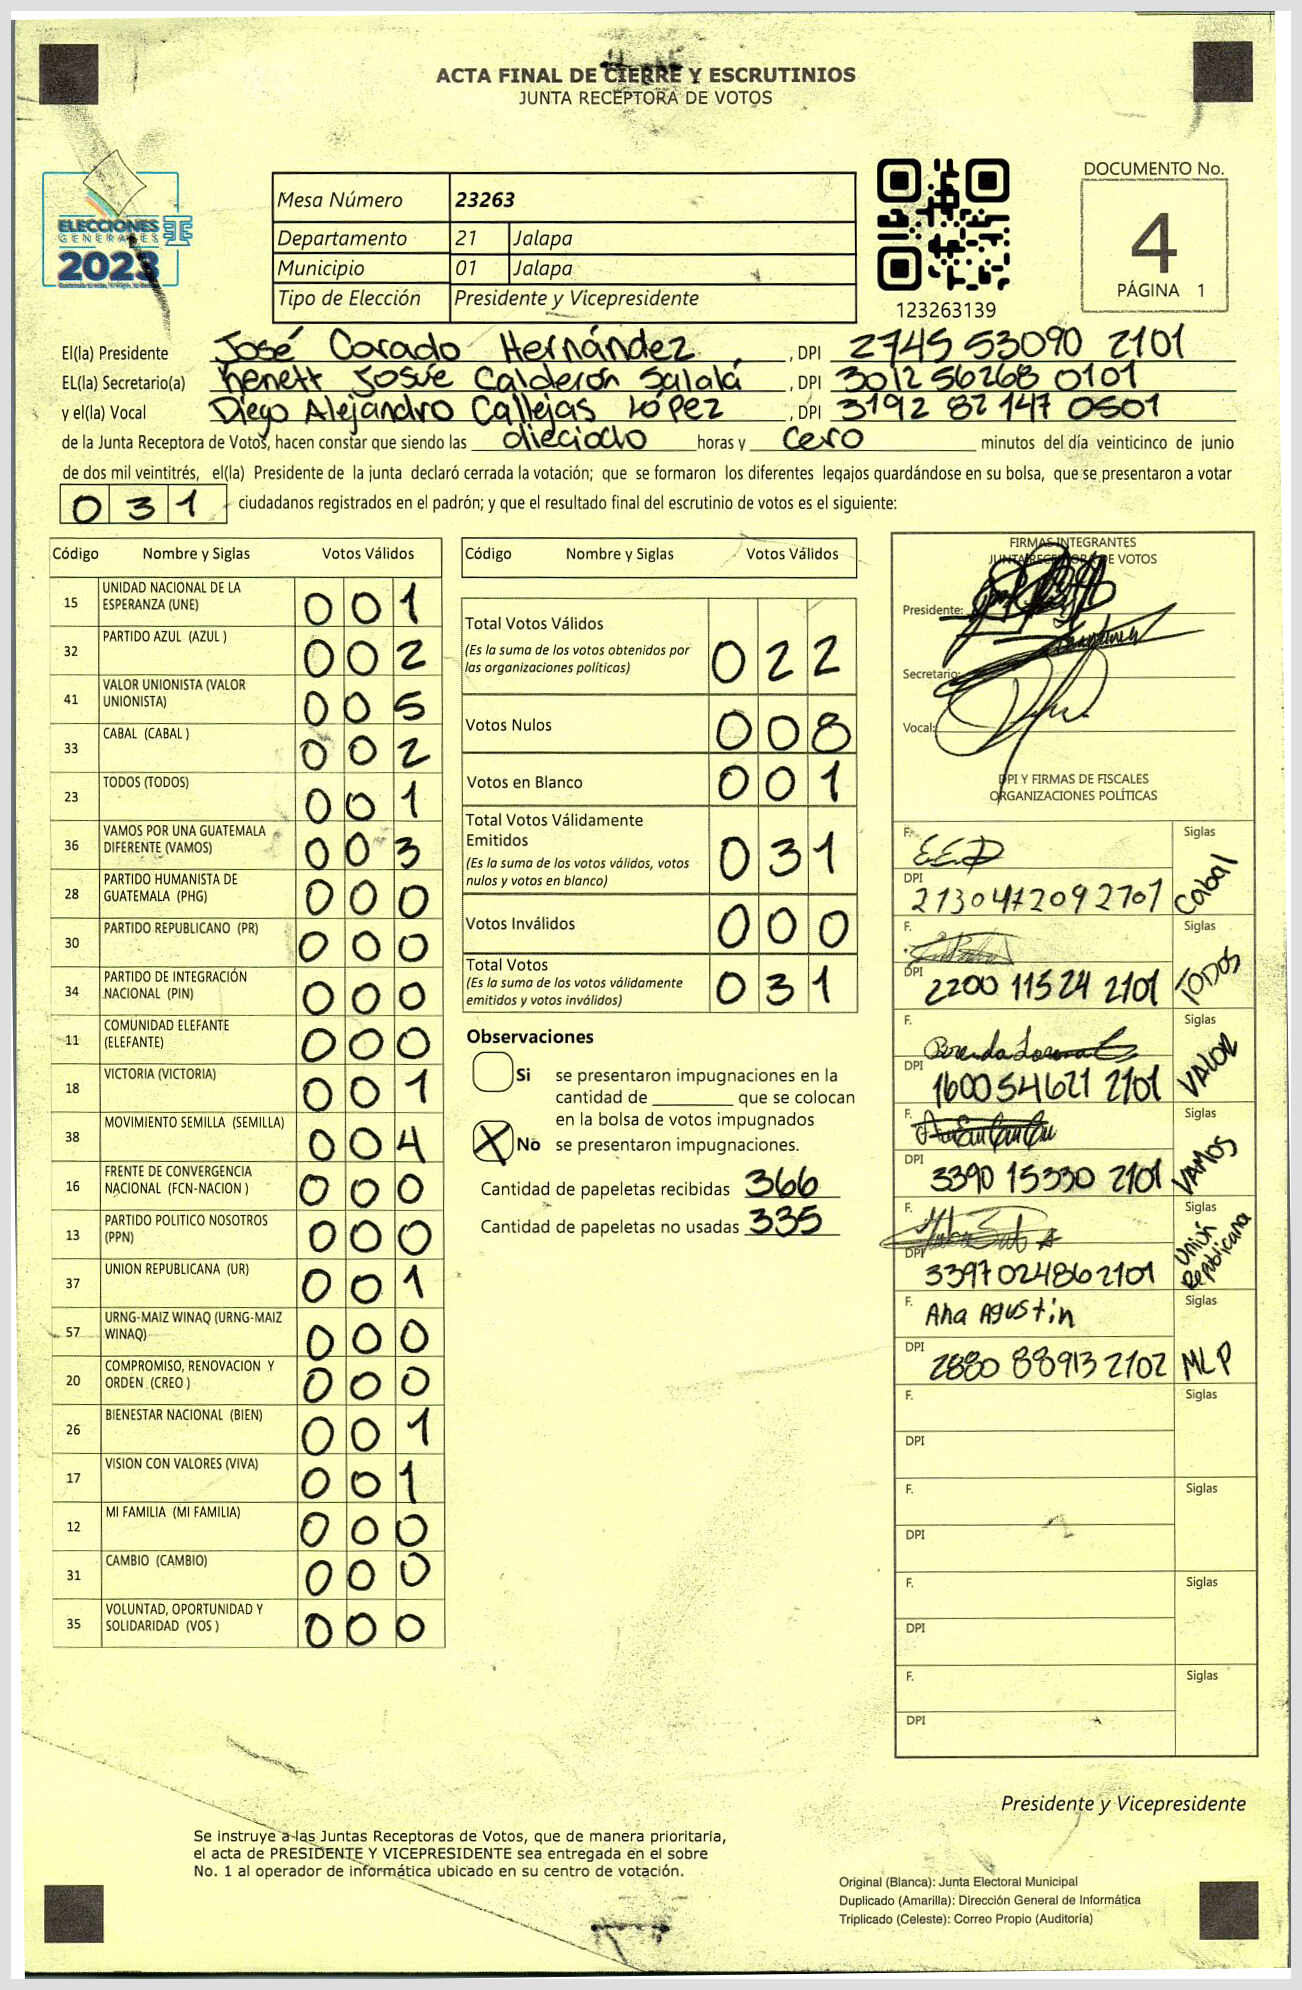 ACTA FINAL DE CIERRE Y ESCRUTINIOS
JUNTA RECEPTORA DE VOTOS
ELECCIONES
GENERALES
2023
Mesa Número 23263
Departamento 21 Jalapa
Municipio 01 Jalapa
Tipo de Elección Presidente y Vicepresidente
123263139
DOCUMENTO No.
4
PÁGINA 1
El(la) Presidente José Corado Hernández, DPI 2745 53090 2101
EL(la) Secretario(a) Kenett Josue Calderón Salalá, DPI 3012 56268 0101
y el(la) Vocal Diego Alejandro Callejas López, DPI 3192 82147 0501
de la Junta Receptora de Votos, hacen constar que siendo las dieciocho horas y cero minutos del día veinticinco de junio
de dos mil veintitrés, el(la) Presidente de la junta declaró cerrada la votación; que se formaron los diferentes legajos guardándose en su bolsa, que se presentaron a votar
031 ciudadanos registrados en el padrón; y que el resultado final del escrutinio de votos es el siguiente:
Código Nombre y Siglas Votos Válidos
15 UNIDAD NACIONAL DE LA ESPERANZA (UNE) 001
32 PARTIDO AZUL (AZUL ) 002
41 VALOR UNIONISTA (VALOR UNIONISTA) 005
33 CABAL (CABAL ) 002
23 TODOS (TODOS) 001
36 VAMOS POR UNA GUATEMALA DIFERENTE (VAMOS) 003
28 PARTIDO HUMANISTA DE GUATEMALA (PHG) 000
30 PARTIDO REPUBLICANO (PR) 000
34 PARTIDO DE INTEGRACIÓN NACIONAL (PIN) 000
11 COMUNIDAD ELEFANTE (ELEFANTE) 000
18 VICTORIA (VICTORIA) 001
38 MOVIMIENTO SEMILLA (SEMILLA) 004
16 FRENTE DE CONVERGENCIA NACIONAL (FCN-NACION ) 000
13 PARTIDO POLITICO NOSOTROS (PPN) 000
37 UNION REPUBLICANA (UR) 001
57 URNG-MAIZ WINAQ (URNG-MAIZ WINAQ) 000
20 COMPROMISO, RENOVACION Y ORDEN (CREO ) 000
26 BIENESTAR NACIONAL (BIEN) 001
17 VISION CON VALORES (VIVA) 001
12 MI FAMILIA (MI FAMILIA) 000
31 CAMBIO (CAMBIO) 000
35 VOLUNTAD, OPORTUNIDAD Y SOLIDARIDAD (VOS ) 000
Código Nombre y Siglas Votos Válidos
Total Votos Válidos 022
(Es la suma de los votos obtenidos por
las organizaciones políticas)
Votos Nulos 008
Votos en Blanco 001
Total Votos Válidamente
Emitidos 031
(Es la suma de los votos válidos, votos
nulos y votos en blanco)
Votos Inválidos 000
Total Votos 031
(Es la suma de los votos válidamente
emitidos y votos inválidos)
Observaciones
Si se presentaron impugnaciones en la
cantidad de que se colocan
en la bolsa de votos impugnados
X No se presentaron impugnaciones.
Cantidad de papeletas recibidas 366
Cantidad de papeletas no usadas 335
FIRMAS INTEGRANTES
JUNTA RECEPTORA DE VOTOS
Presidente:
Secretario:
Vocal:
DPI Y FIRMAS DE FISCALES
ORGANIZACIONES POLÍTICAS
F. Siglas
DPI 2130472092701 Cabal
F. Siglas
DPI 2200 11524 2101 TODOS
F. Brenda Siglas
DPI 1600 54621 2101 VALOR
F. Siglas
DPI 3390 15330 2101 VAMOS
F. Siglas
DPI 3397024862101 Unión Republicana
F. Ana Agustin Siglas
DPI 2880 88913 2102 MLP
F. Siglas
DPI
F. Siglas
DPI
F. Siglas
DPI
F. Siglas
DPI
Presidente y Vicepresidente
Se instruye a las Juntas Receptoras de Votos, que de manera prioritaria,
el acta de PRESIDENTE Y VICEPRESIDENTE sea entregada en el sobre
No. 1 al operador de informática ubicado en su centro de votación.
Original (Blanca): Junta Electoral Municipal
Duplicado (Amarilla): Dirección General de Informática
Triplicado (Celeste): Correo Propio (Auditoría)